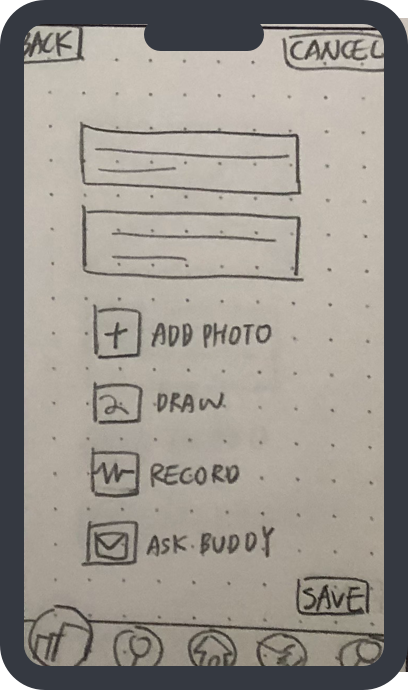 BACK
CANCEL
ADD PHOTO
DRAW
RECORD
ASK BUDDY
SAVE